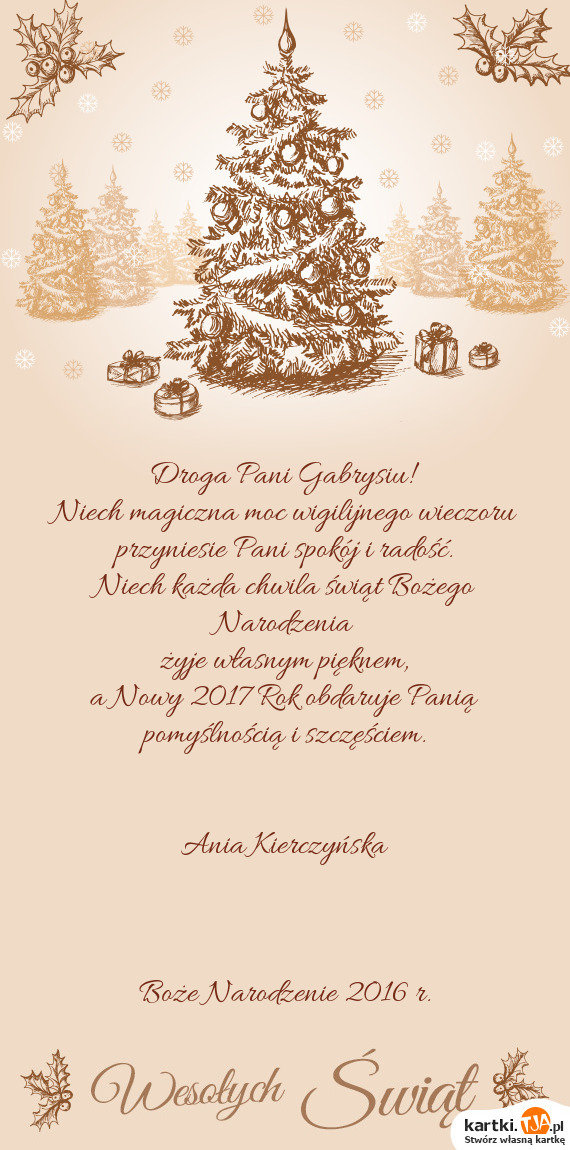 Droga Pani Gabrysiu!
Niech magiczna moc wigilijnego wieczoru
przyniesie Pani spokój i radość.
Niech każda chwila świąt Bożego
Narodzenia
żyje własnym pięknem,
a Nowy 2017 Rok obdaruje Panią
pomyślnością i szczęściem.
Ania Kierczyńska
Boże Narodzenie 2016 r.
Wesołych Świąt
kartki.TJA.pl
Stwórz własną kartkę